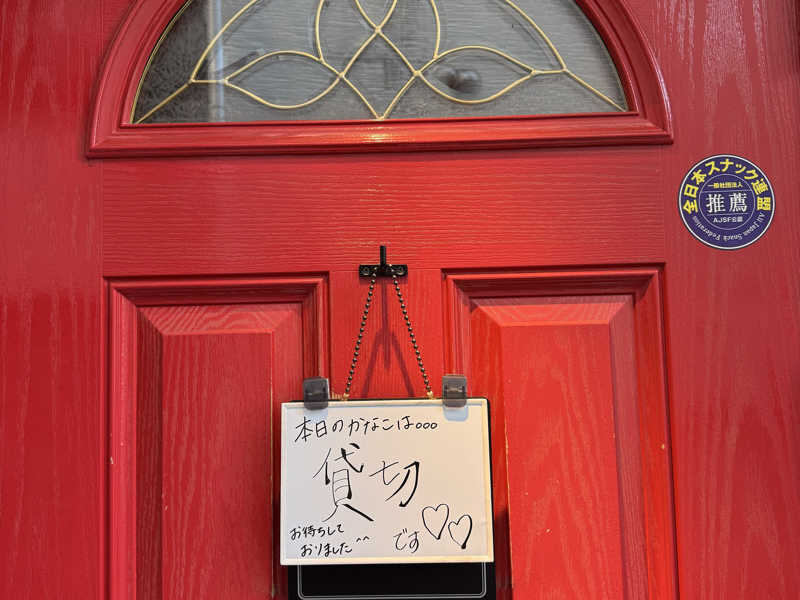 全日本スナック連盟
一般社団法人
推薦
AJSF公認
All Japan Snack Federation
本日のかなこは。。。
貸切
お待ちして
おりました^^
です♡♡